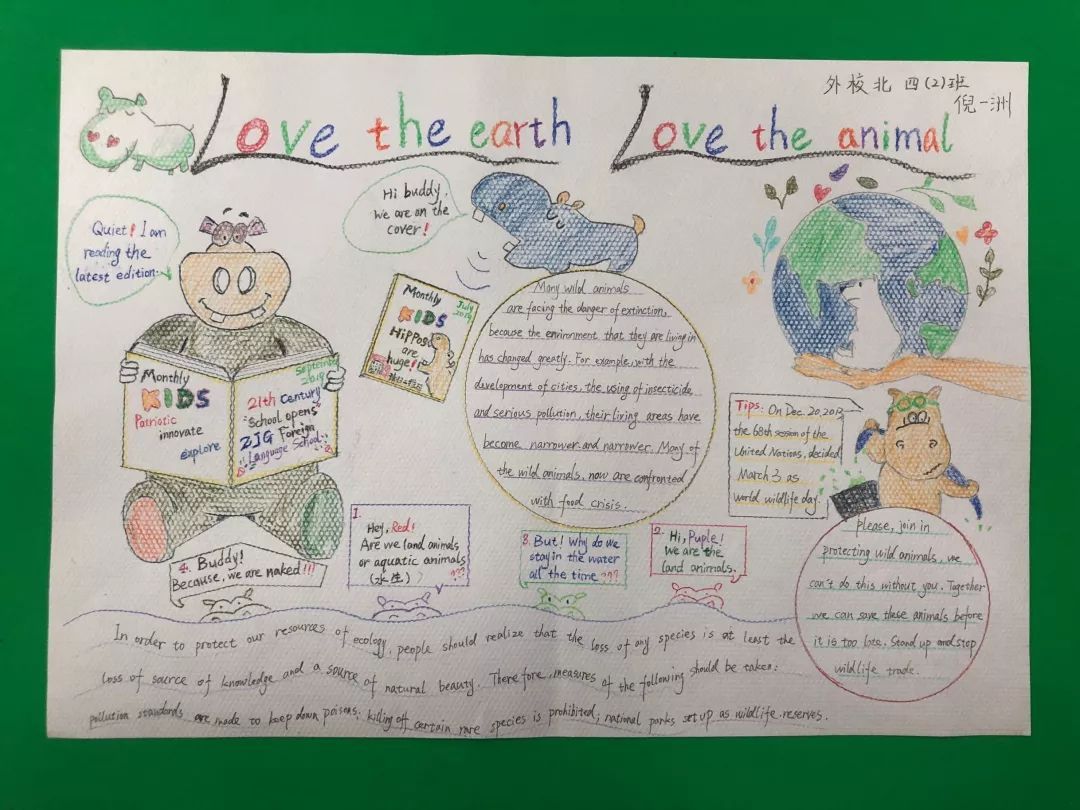 Love the earth Love the animal
外校北 四(2)班
倪一洲
Quiet! I am
reading the
latest edition.
Hi buddy,
we are on the
cover!
Monthly
KIDS
Patriotic
innovate
explore
September
2019
21th Century
School opens
ZJG Foreign
Language School!
Monthly
July
2019
KIDS
Hippos
are
huge!
Many wild animals
are facing the danger of extinction,
because the environment that they are living in
has changed greatly. For example, with the
development of cities, the using of insecticide
and serious pollution, their living areas have
become narrower and narrower. Many of
the wild animals, now are confronted
with food crisis.
Tips: On Dec. 20, 2013,
the 68th session of the
United Nations, decided
March 3 as
world wildlife day.
please, join in
protecting wild animals, we
can't do this without you. Together
we can save these animals before
it is too late. Stand up and stop
wildlife trade.
1.
Hey, Red!
Are we land animals
or aquatic animals
(水生)
???
2. Hi, Puple!
We are the
land animals.
3. But! Why do we
stay in the water
all the time???
4. Buddy!
Because, we are naked!!!
In order to protect our resources of ecology, people should realize that the loss of any species is at least the
loss of source of knowledge and a source of natural beauty. Therefore, measures of the following should be taken:
pollution standards are made to keep down poisons; killing off certain rare species is prohibited; national parks set up as wildlife reserves.